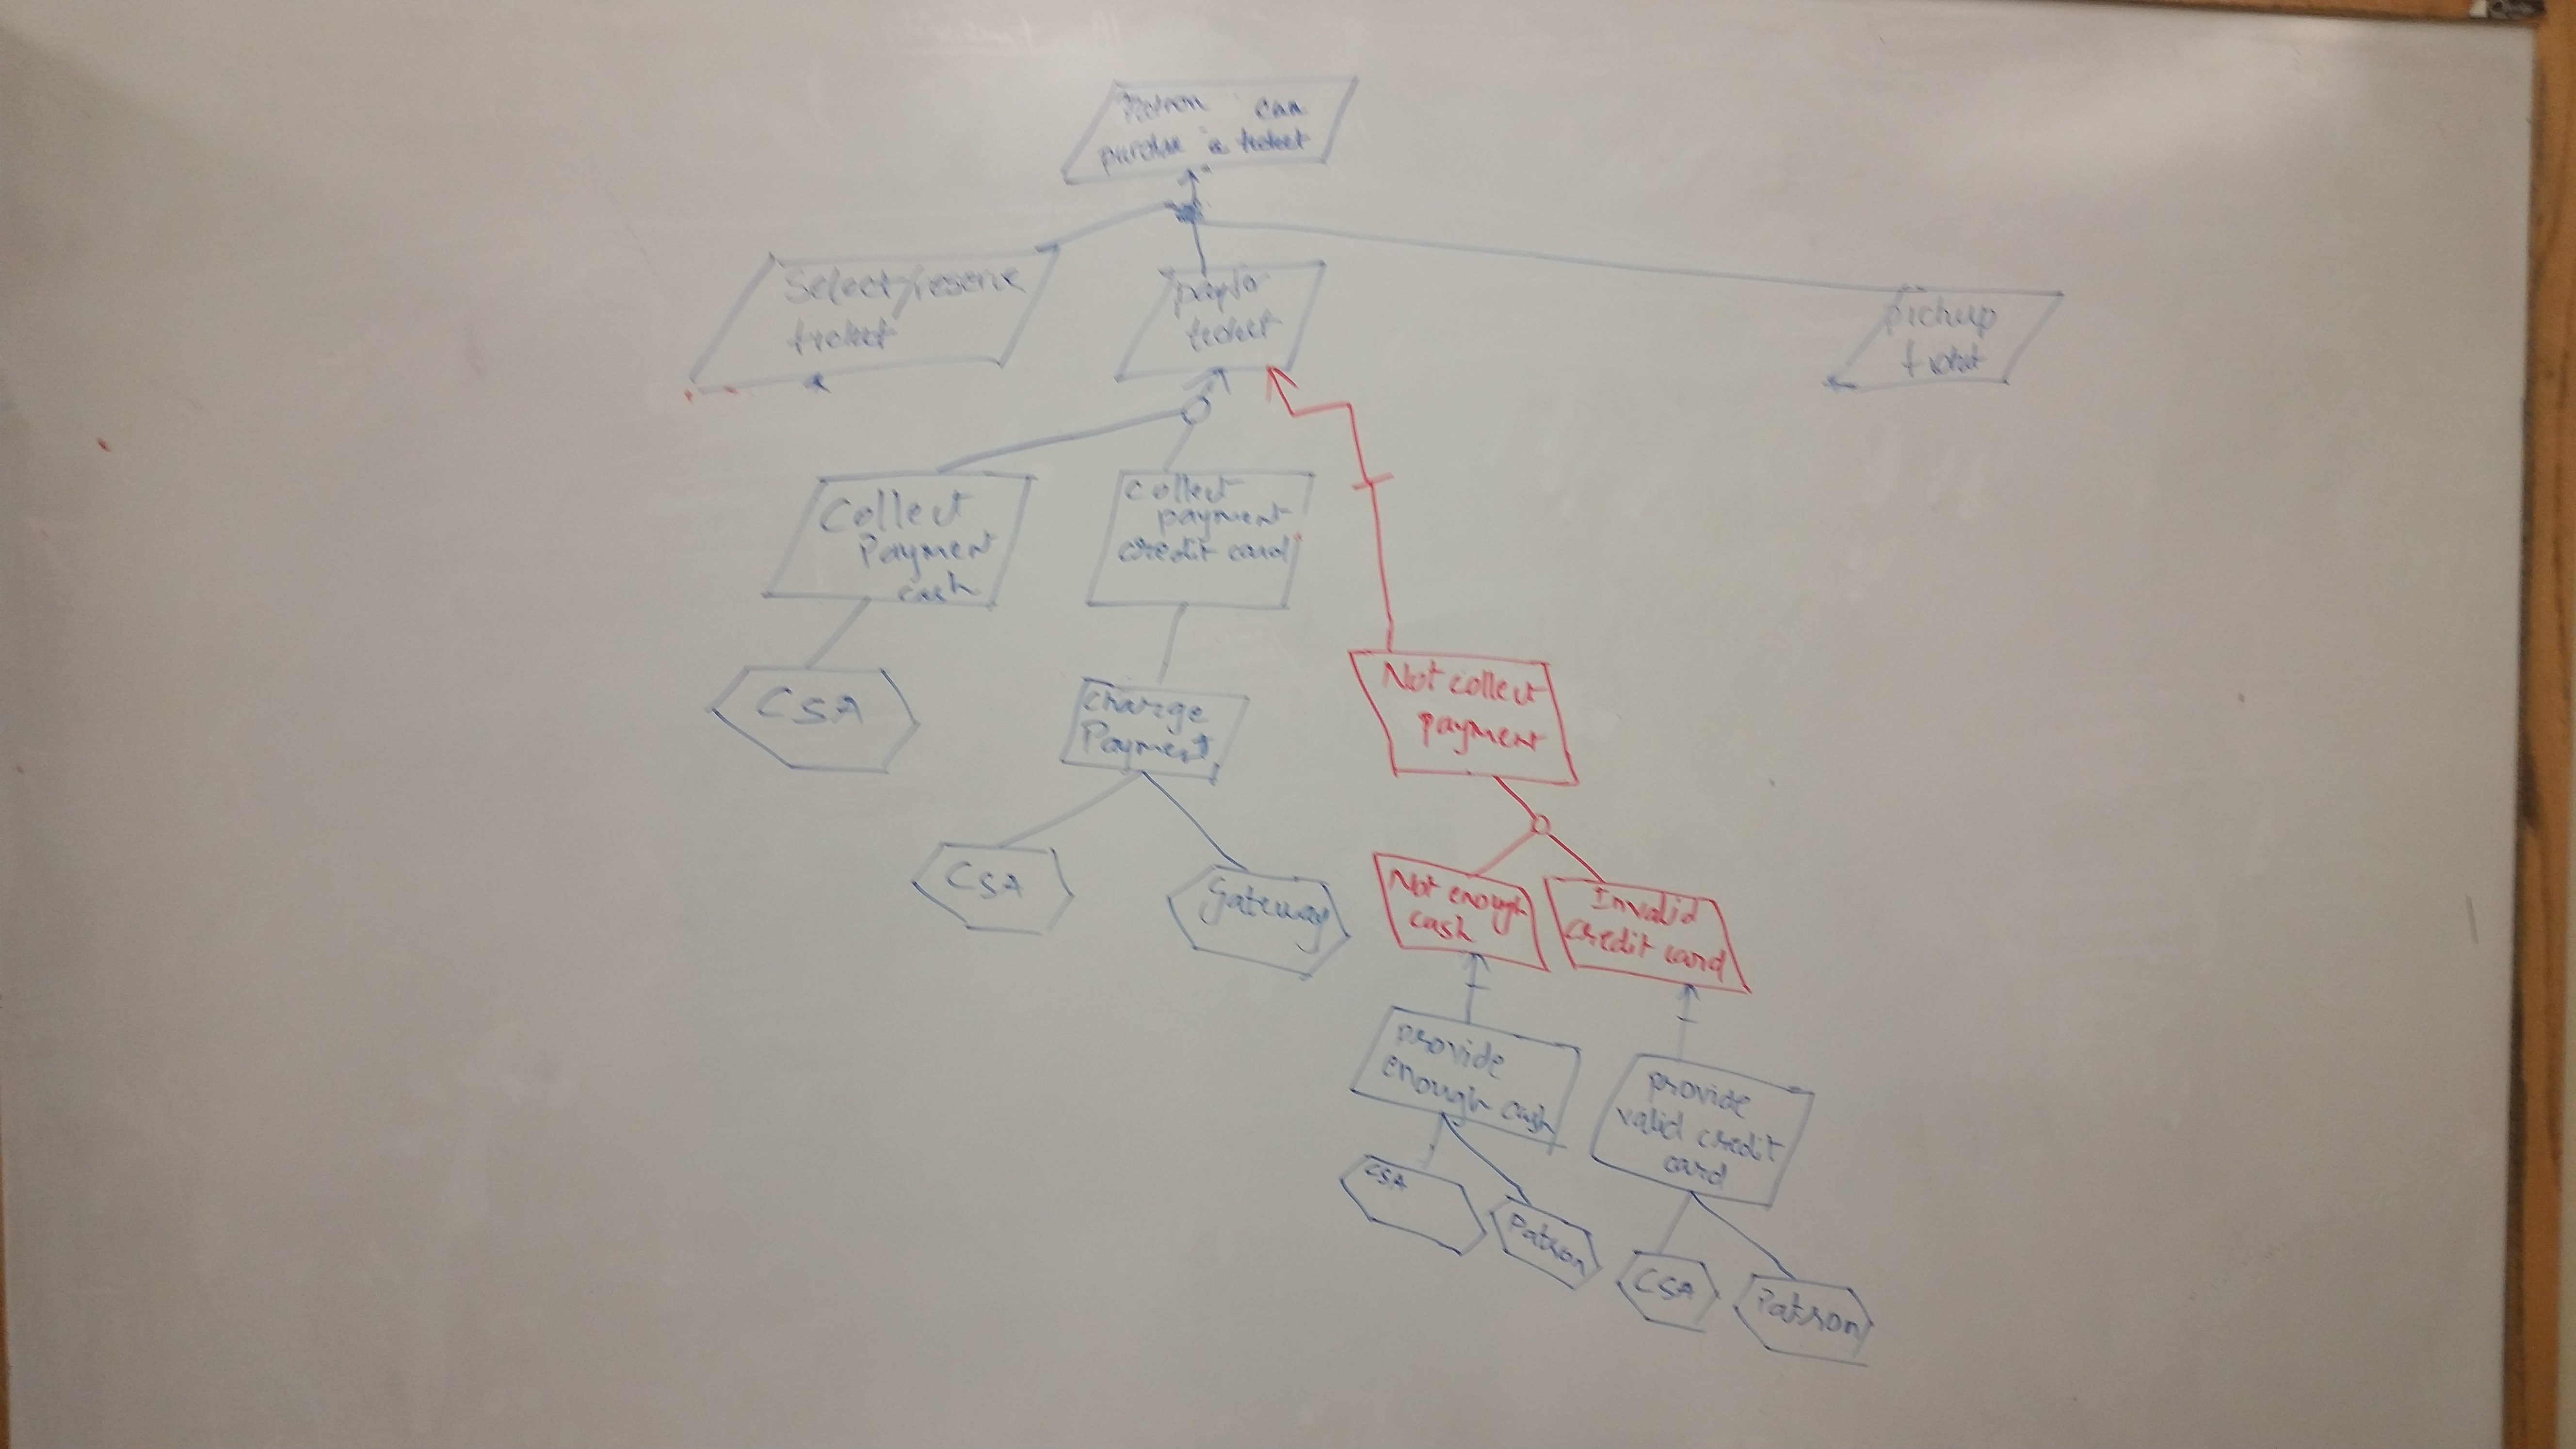 Patron can
purchase a ticket
Select/reserve
ticket
pay for
ticket
pickup
ticket
Collect
Payment
cash
collect
payment
credit card
CSA
charge
Payment
Not collect
payment
CSA
Gateway
Not enough
cash
Invalid
credit card
provide
enough cash
provide
valid credit
card
CSA
Patron
CSA
Patron